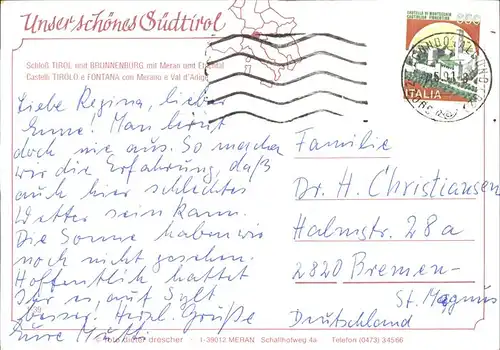 Unser schönes Südtirol
Schloß TIROL und BRUNNENBURG mit Meran und Etschtal
Castelli TIROLO e FONTANA con Merano e Val d'Adige
CASTELLO DI MONTECCHIO
CASTIGLION FIORENTINO
ITALIA
Liebe Regina, lieber
Enne! Man lernt
doch nie aus. So machen
wir die Erfahrung, daß
auch hier schlechtes
Wetter sein kann.
Die Sonne haben wir
noch nicht gesehen.
Hoffentlich hattet
Ihr es auf Sylt
besser. Herzl. Grüße
Eure Mutti
Familie
Dr. H. Christiansen
Halmstr. 28a
2820 Bremen-
St. Magnus
Deutschland
foto drescher I-39012 MERAN Schallhofweg 4a Telefon (0473) 34566